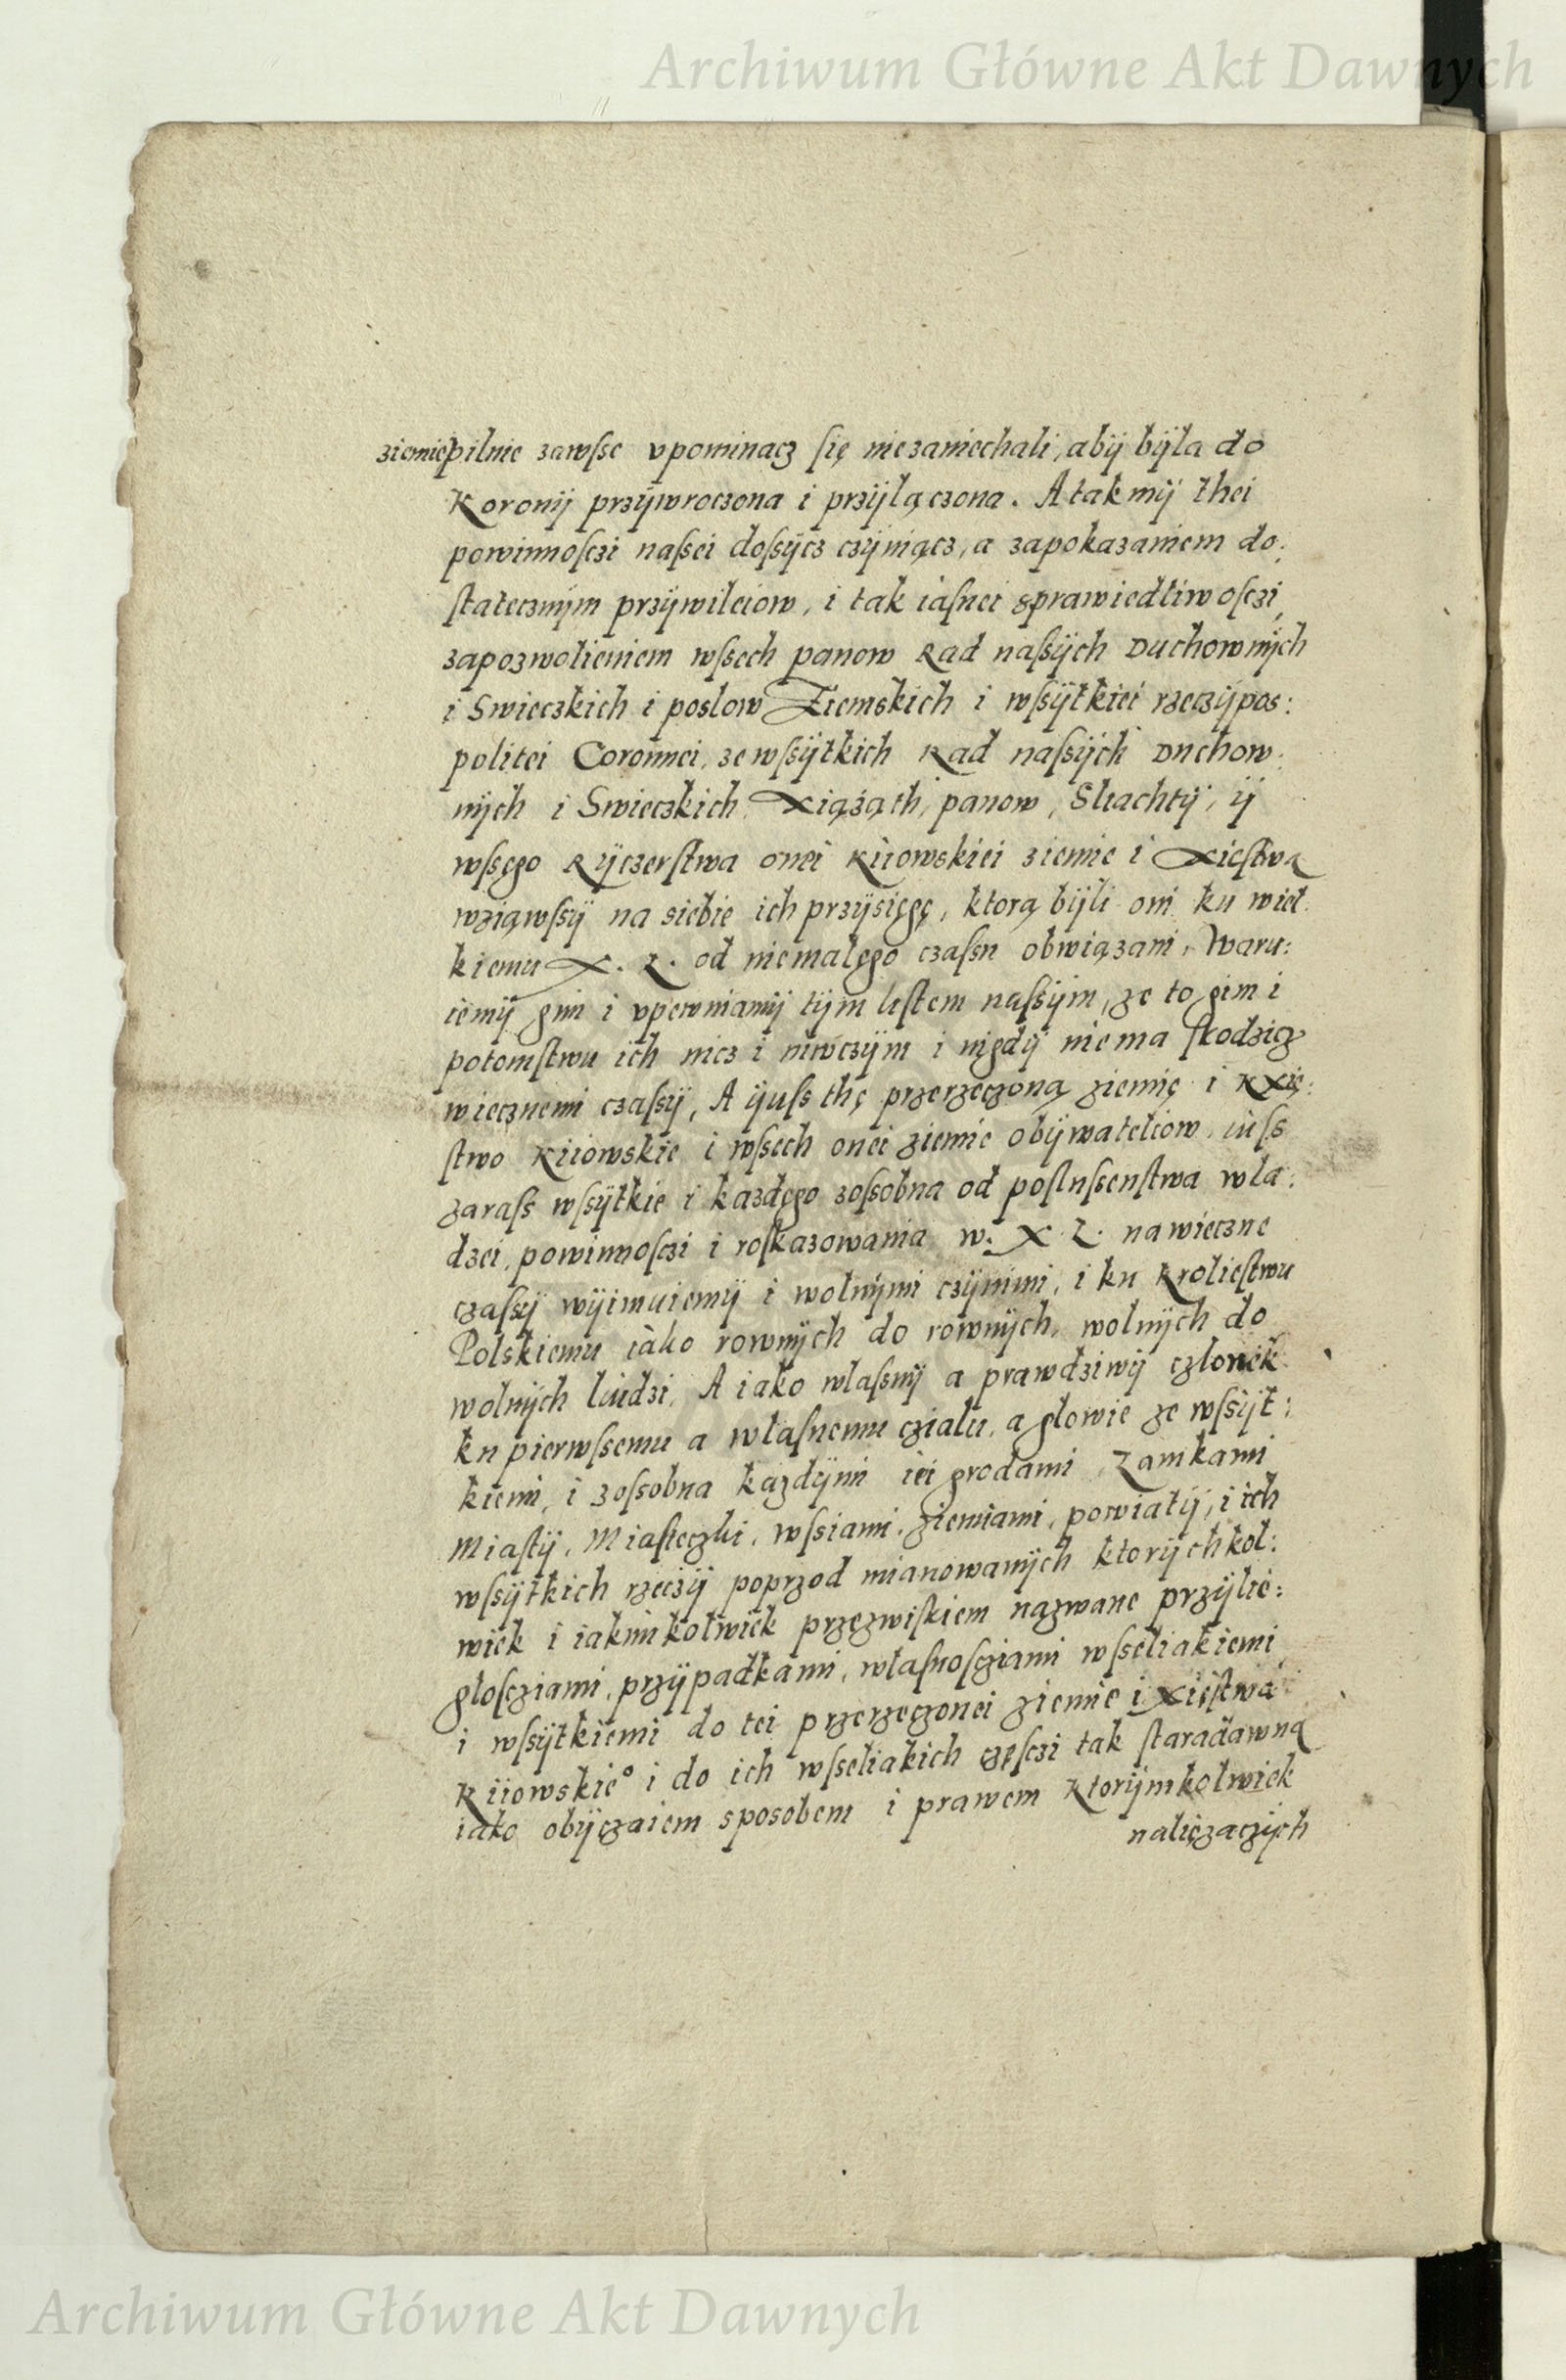 Archiwum Główne Akt Dawnych
ziemie pilnie zawsſe vpominacz ſię niezaniechali, abÿ bÿla do
Koronÿ przÿwroczona i przÿlączona. A tak mÿ thei
powinnoſczi naſsei doſsÿcz czÿniącz, a zapokazaniem do:
ſtatecznÿm przÿwileiow, i tak iaſnei sprawiedliwoſczi,
zapozwolieniem wſsech panow Rad naſsÿch Duchownÿch
i Swieczkich i poslow Ziemskich i wſsÿtkiei rzeczÿpos:
politei Coronnei, ze wſsÿtkich Rad naſsÿch Duchow:
nÿch i Swieczkich, Xiążąth, panow, Sliachtÿ, ÿ
wſsego Rÿczerſtwa onei Kiiowskiei ziemie i Xieſtwa
wziąwſsÿ na siebie ich przÿsięgę, ktorą bÿli oni ku wiel
kiemu X. L. od niemalego czaſsu obwiązani, Waru:
iemÿ gim i vpewniamÿ tÿm liſtem naſsÿm, że to gim i
potomſtwu ich nicz i niwczÿm i nigdÿ niema ſkodzicz
wiecznemi czaſsÿ, A ÿuſs thę przerzeczoną ziemię i Kxię:
ſtwo Kiiowskie i wſsech onei ziemie obÿwateliow, iuſs
zaraſs wſsÿtkie i kazdego zoſsobna od poſluſsenſtwa wla:
dzei, powinnoſczi i roſkazowania w. X. L. nawieczne
czaſsÿ wÿimuiemÿ i wolnÿmi czÿnimi, i ku Krolieſtwu
Polskiemu iako rownÿch do rownÿch, wolnÿch do
wolnÿch liudzi, A iako wlaſsnÿ a prawdziwÿ czlonek
ku pierwſsemu a wlaſnemu czialu, a glowie ze wſsÿt:
kiemi, i zoſsobna kazdÿmi iei grodami, Zamkami
Miaſtÿ, Miaſteczki, wſsiami, ziemiami, powiatÿ, i ich
wſsÿtkich rzeczÿ poprzod mianowanÿch ktorÿchkol:
wiek i iakimkolwiek przezwiſkiem nazwane przÿlie:
gloſcziami, przÿpadkami, wlaſnoſcziami wſseliakiemi
i wſsÿtkiemi do tei przerzeczonei ziemie i Xięſtwa
Kiiowskieº i do ich wſseliakich częſczi tak ſtaradawną
iako obÿczaiem sposobem i prawem ktorÿmkolwiek
naliczaczÿch
Archiwum Główne Akt Dawnych